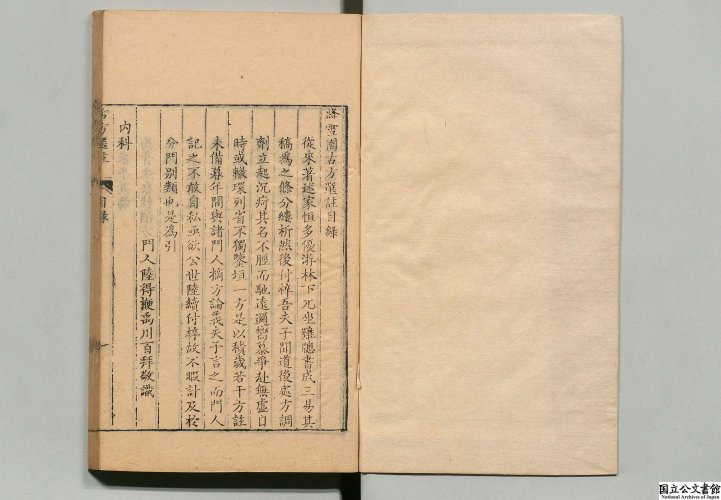 絳雪園古方選註目錄
從來著述家恒多優游林下兀坐雞牕書成三易其
稿為之條分縷析然後付梓吾夫子聞道後處方調
劑立起沉疴其名不脛而馳遠邇嚮慕爭赴無虛日
時或轍環列省不獨鑒垣一方是以積歲若干方註
未備暮年間與諸門人摘方論義夫子言之而門人
記之不敢自私亟欲公世陸續付梓故不暇計及於
分門別類也是為引
門人陸得楩禹川百拜敬識
內科
古方選註
目錄
国立公文書館
National Archives of Japan